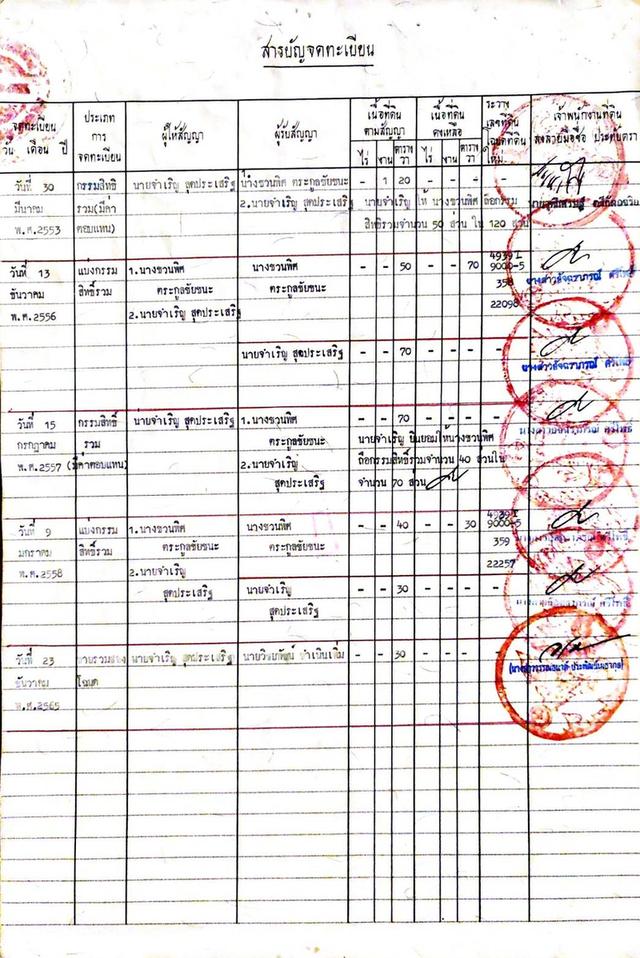 สารบัญจดทะเบียน
จดทะเบียน วัน เดือน ปี
ประเภท การ จดทะเบียน
ผู้ให้สัญญา
ผู้รับสัญญา
เนื้อที่ดิน ตามสัญญา
ไร่ งาน ตาราง วา
เนื้อที่ดิน คงเหลือ
ไร่ งาน ตาราง วา
ระวาง เลขที่ดิน โฉนดที่ดิน ใหม่
เจ้าพนักงานที่ดิน ลงลายมือชื่อ ประทับตรา
วันที่ 30 กรรมสิทธิ์ นายจำเริญ สุดประเสริฐ นางชวนพิศ ตระกูลชัยชนะ - 1 20 - - - -
มีนาคม รวม(มีค่า 2.นายจำเริญ สุดประเสริฐ นายจำเริญ ให้ นางชวนพิศ ถือกรรม
พ.ศ.2553 ตอบแทน) สิทธิ์รวมจำนวน 50 ส่วน ใน 120 ส่วน
วันที่ 13 แบ่งกรรม 1.นางชวนพิศ นางชวนพิศ - - 50 - - 70 9000-5
ธันวาคม สิทธิ์รวม ตระกูลชัยชนะ ตระกูลชัยชนะ 358
พ.ศ.2556 2.นายจำเริญ สุดประเสริฐ 22098
นายจำเริญ สุดประเสริฐ - - 70 - - - -
วันที่ 15 กรรมสิทธิ์ นายจำเริญ สุดประเสริฐ 1.นางชวนพิศ - - 70 - - - -
กรกฎาคม รวม ตระกูลชัยชนะ นายจำเริญ ยินยอมให้นางชวนพิศ
พ.ศ.2557 (มีค่าตอบแทน) 2.นายจำเริญ ถือกรรมสิทธิ์รวมจำนวน 40 ส่วนใน
สุดประเสริฐ จำนวน 70 ส่วน
วันที่ 9 แบ่งกรรม 1.นางชวนพิศ นางชวนพิศ - - 40 - - 30 9000-5
มกราคม สิทธิ์รวม ตระกูลชัยชนะ ตระกูลชัยชนะ 359
พ.ศ.2558 2.นายจำเริญ 22257
สุดประเสริฐ นายจำเริญ - - 30 - - - -
สุดประเสริฐ
วันที่ 23 นายจำเริญ สุดประเสริฐ - - 30 - - - -
ธันวาคม โฉนด
พ.ศ.2565